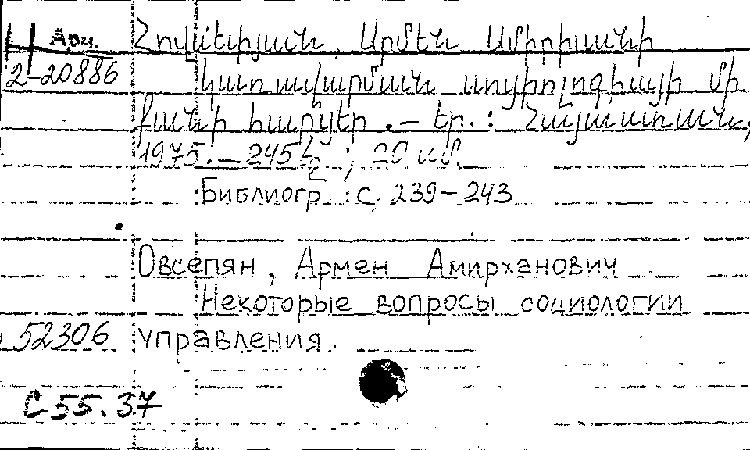 Арм. Հովսեփյան, Արմեն Ամիրխանի
2-20886 Կառավարման սոցիոլոգիայի մի
քանի հարցեր .— Եր. : Հայաստան,
1975.— 245 էջ ; 20 սմ
Библиогр.: с. 239-243
Овсепян, Армен Амирханович
Некоторые вопросы социологии
52306 управления.
С55.37